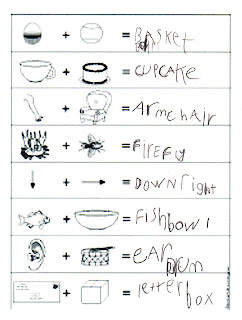 + = BASKET
+ = CUPCAKE
+ = Armchair
+ = FireFly
+ = DOWNright
+ = Fishbowl
+ = EAR Drum
+ = letter box